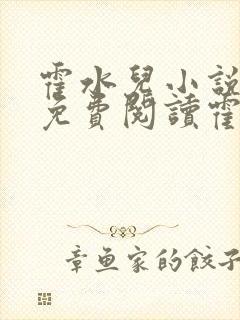 霍水兒小說
免費閱讀霍
章魚家的餃子